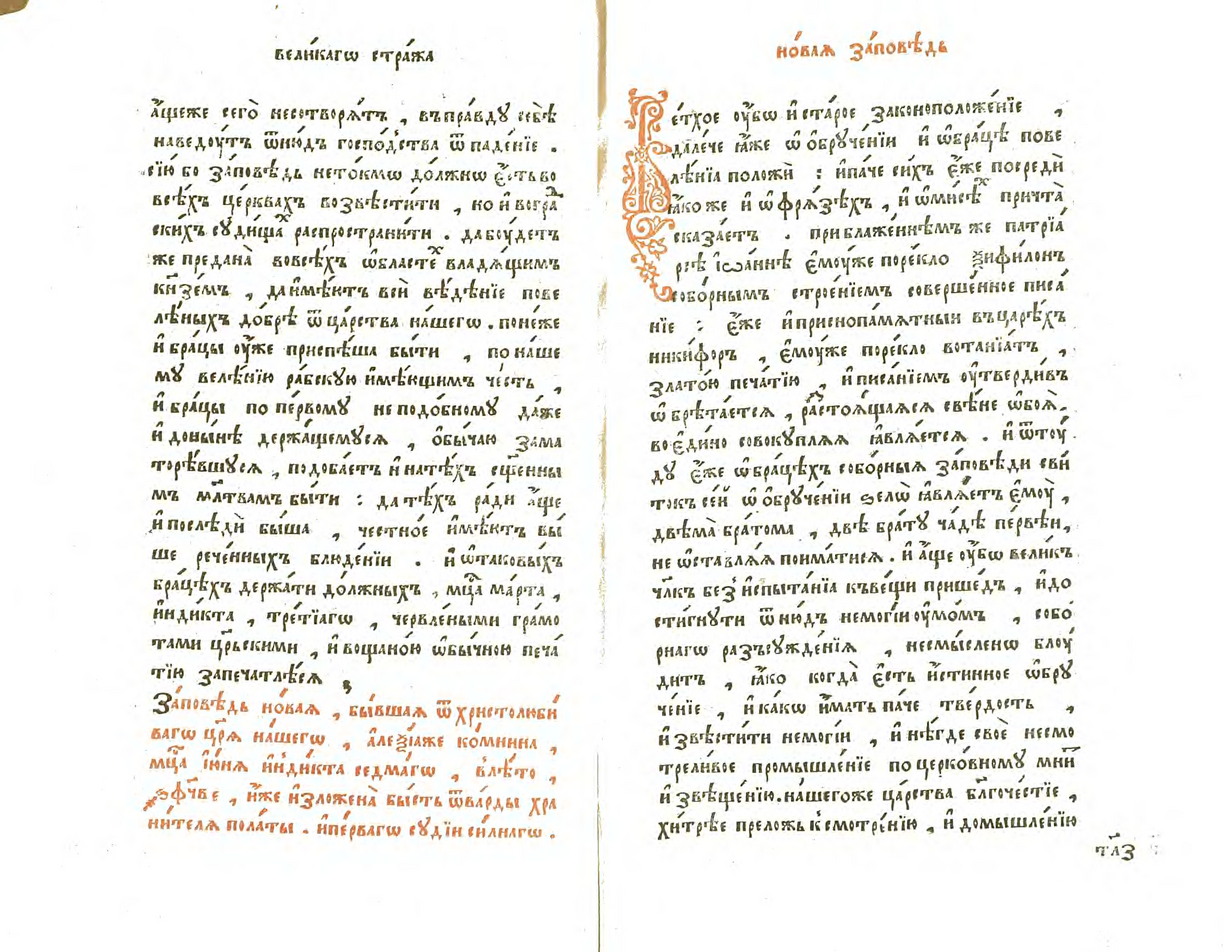 вели́кагѡ стра́жа
а҆́щеже сегѡ̀ несотворѧ́тъ , въпра́вдꙋ себѣ̀
наведꙋ́тъ ѿню́дъ госпо́дства ѿ паде́нїе .
сїю̀ бо за́повѣдь нето́кмѡ до́лжнѡ є҆́сть во
всѣ́хъ це́рквахъ возвѣсти́ти , но и҆ вогра
скихъ сꙋ́дищахъ распространи́ти . да бꙋ́детъ
же предана̀ вовсѣ́хъ ѡ҆бластех владꙋ́щимъ
кнѧзе́мъ , да и҆мѣ́ютъ всѝ вѣ́дѣнїе пове
лѣ́ныхъ до́брѣ ѿ ца́рства на́шегѡ . поне́же
и҆ бра́цы ᲂу҆́же приспѣ́ша бы́ти , по на́ше
мꙋ велѣ́нїю ра́бскꙋю и҆мѣ́ющимъ че́сть ,
и҆ бра́цы по пе́рвомꙋ не подо́бномꙋ да́же
и҆ доны́нѣ держа́щемꙋсѧ , ѻ҆бы́чаю зама
торѣ́вшꙋсѧ , подоба́етъ и҆ на тѣ́хъ сщ҃е́нны
мъ мл҃твамъ бы́ти : да тѣ́хъ ра́ди а҆́ще
и҆ послѣдѝ бы́ша , че́стное и҆мѣ́ютъ вы́
ше рече́нныхъ блюде́нїи . и҆ ѡ҆таковы́хъ
бра́цѣхъ держа́ти до́лжныхъ , мцⷭ҇а ма́рта ,
и҆нди́кта , тре́тїагѡ , черв́леными грамо
тами црⷭ҇кими , и҆ воща́ною ѡ҆бы́чною печа́
тїю запечатлѣ́сѧ
За́повѣдь но́ваѧ , бы́вшаѧ ѿ христолюби́
вагѡ цр҃ѧ̀ на́шегѡ , а҆леѯїа́же комнина ,
мцⷭ҇а і҆ю́нѧ и҆нди́кта седма́гѡ , влѣ́то ,
҂ѕфч҃ве , и҆́же и҆зложена̀ бы́сть ѿва́рды хра
ни́телѧ пола́ты . и҆пе́рвагѡ сꙋдїѝ си́лнагѡ .
но́ваѧ за́повѣдь
Ве́тхое ᲂу҆́бѡ и҆ ста́рое законоположе́нїе ,
дале́че ꙗ҆́же ѡ҆ ѻ҆брꙋче́нїи и҆ ѡ҆бра́цѣ пове
лѣ́нїа положѝ : и҆па́че си́хъ є҆́же посредѝ
ꙗ҆́коже и҆ ѡ҆ фрѧ́зѣхъ , и҆ ѡ҆ ми́сѣхъ при́тча
сказа́етъ . при блаже́ннѣмъ же патрїа́
рсѣ і҆ѡа́ннѣ є҆мꙋ́же поре́кло ѯифили́нъ
собо́рнымъ строе́нїемъ соверше́нное писа́
нїе : є҆́же и҆ приснопа́мѧтныи въцарѣ́хъ
ники́форъ , є҆мꙋ́же поре́кло вотанїа́тъ ,
злато́ю печа́тїю , и҆ писа́нїемъ ᲂу҆тверди́въ
ѡ҆брѣта́етсѧ , растоѧ́щаѧсѧ свѣ́не ѡ҆боѧ̀ .
во є҆ди́но совокꙋплѧ́ѧ ꙗ҆влѧ́етсѧ . и҆ ѿтꙋ́
дꙋ є҆́же ѡ҆бра́цѣхъ собо́рныѧ за́повѣди сви́
токъ се́й ѡ҆ ѻ҆брꙋче́нїи ѕелѡ̀ ꙗ҆влѧ́етъ є҆мꙋ̀ ,
двѣма̀ бра́тома , двѣ̀ бра́тꙋ ча́дѣ пе́рвѣи ,
не ѡ҆ставлѧ́ѧ поима́тисѧ . и҆ а҆́ще ᲂу҆́бѡ вели́къ
чл҃къ без̾ и҆спыта́нїа къве́щи прише́дъ , и҆до
сти́гнꙋти ѿню́дъ немогі́и ᲂу҆мо́мъ , собо́
рнагѡ разъсꙋжде́нїѧ , несмы́сленѡ блꙋ́
дитъ , ꙗ҆́кѡ когда̀ є҆́сть и҆́стинное ѡ҆брꙋ
че́нїе , и҆ ка́кѡ и҆́мать па́че тве́рдость ,
и҆звѣсти́ти немогі́и , и҆ нѣ́где своѐ несмо
тре́ливое промышле́нїе по церко́вномꙋ мни́
и҆звѣще́нїю . на́шегоже ца́рства бл҃гоче́стїе ,
хи́трѣе прело́жь ксмотре́нїю , и҆ домышле́нїю
тл҃з